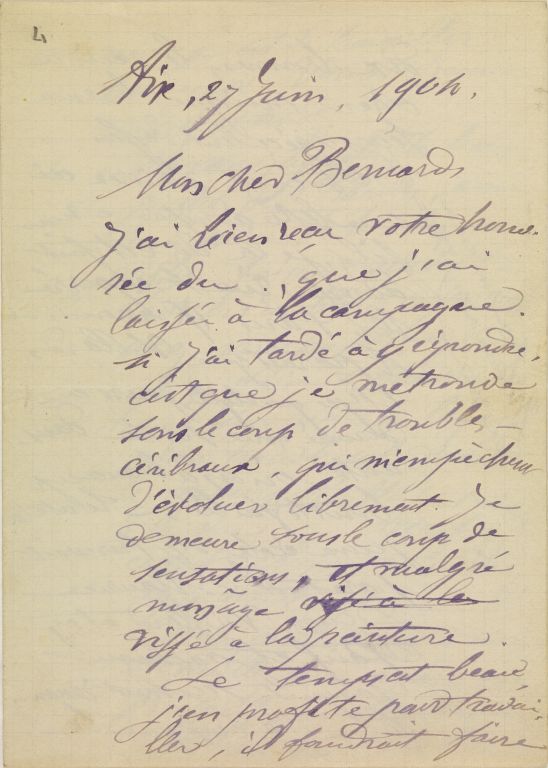 4
Aix, 27 Juin, 1904.
Mon cher Bernard
J'ai bien reçu votre hono-
rée du .., que j'ai
laissée à la campagne.
si j'ai tardé à y répondre,
c'est que je me trouve
sous le coup de troubles
cérébraux, qui m'empêchent
d'évoluer librement. Je
demeure sous le coup de
sensations, et malgré
mon âge vissé à la
vissé à la peinture.
Le temps est beau,
j'en profite pour travai-
ller, il faudrait faire